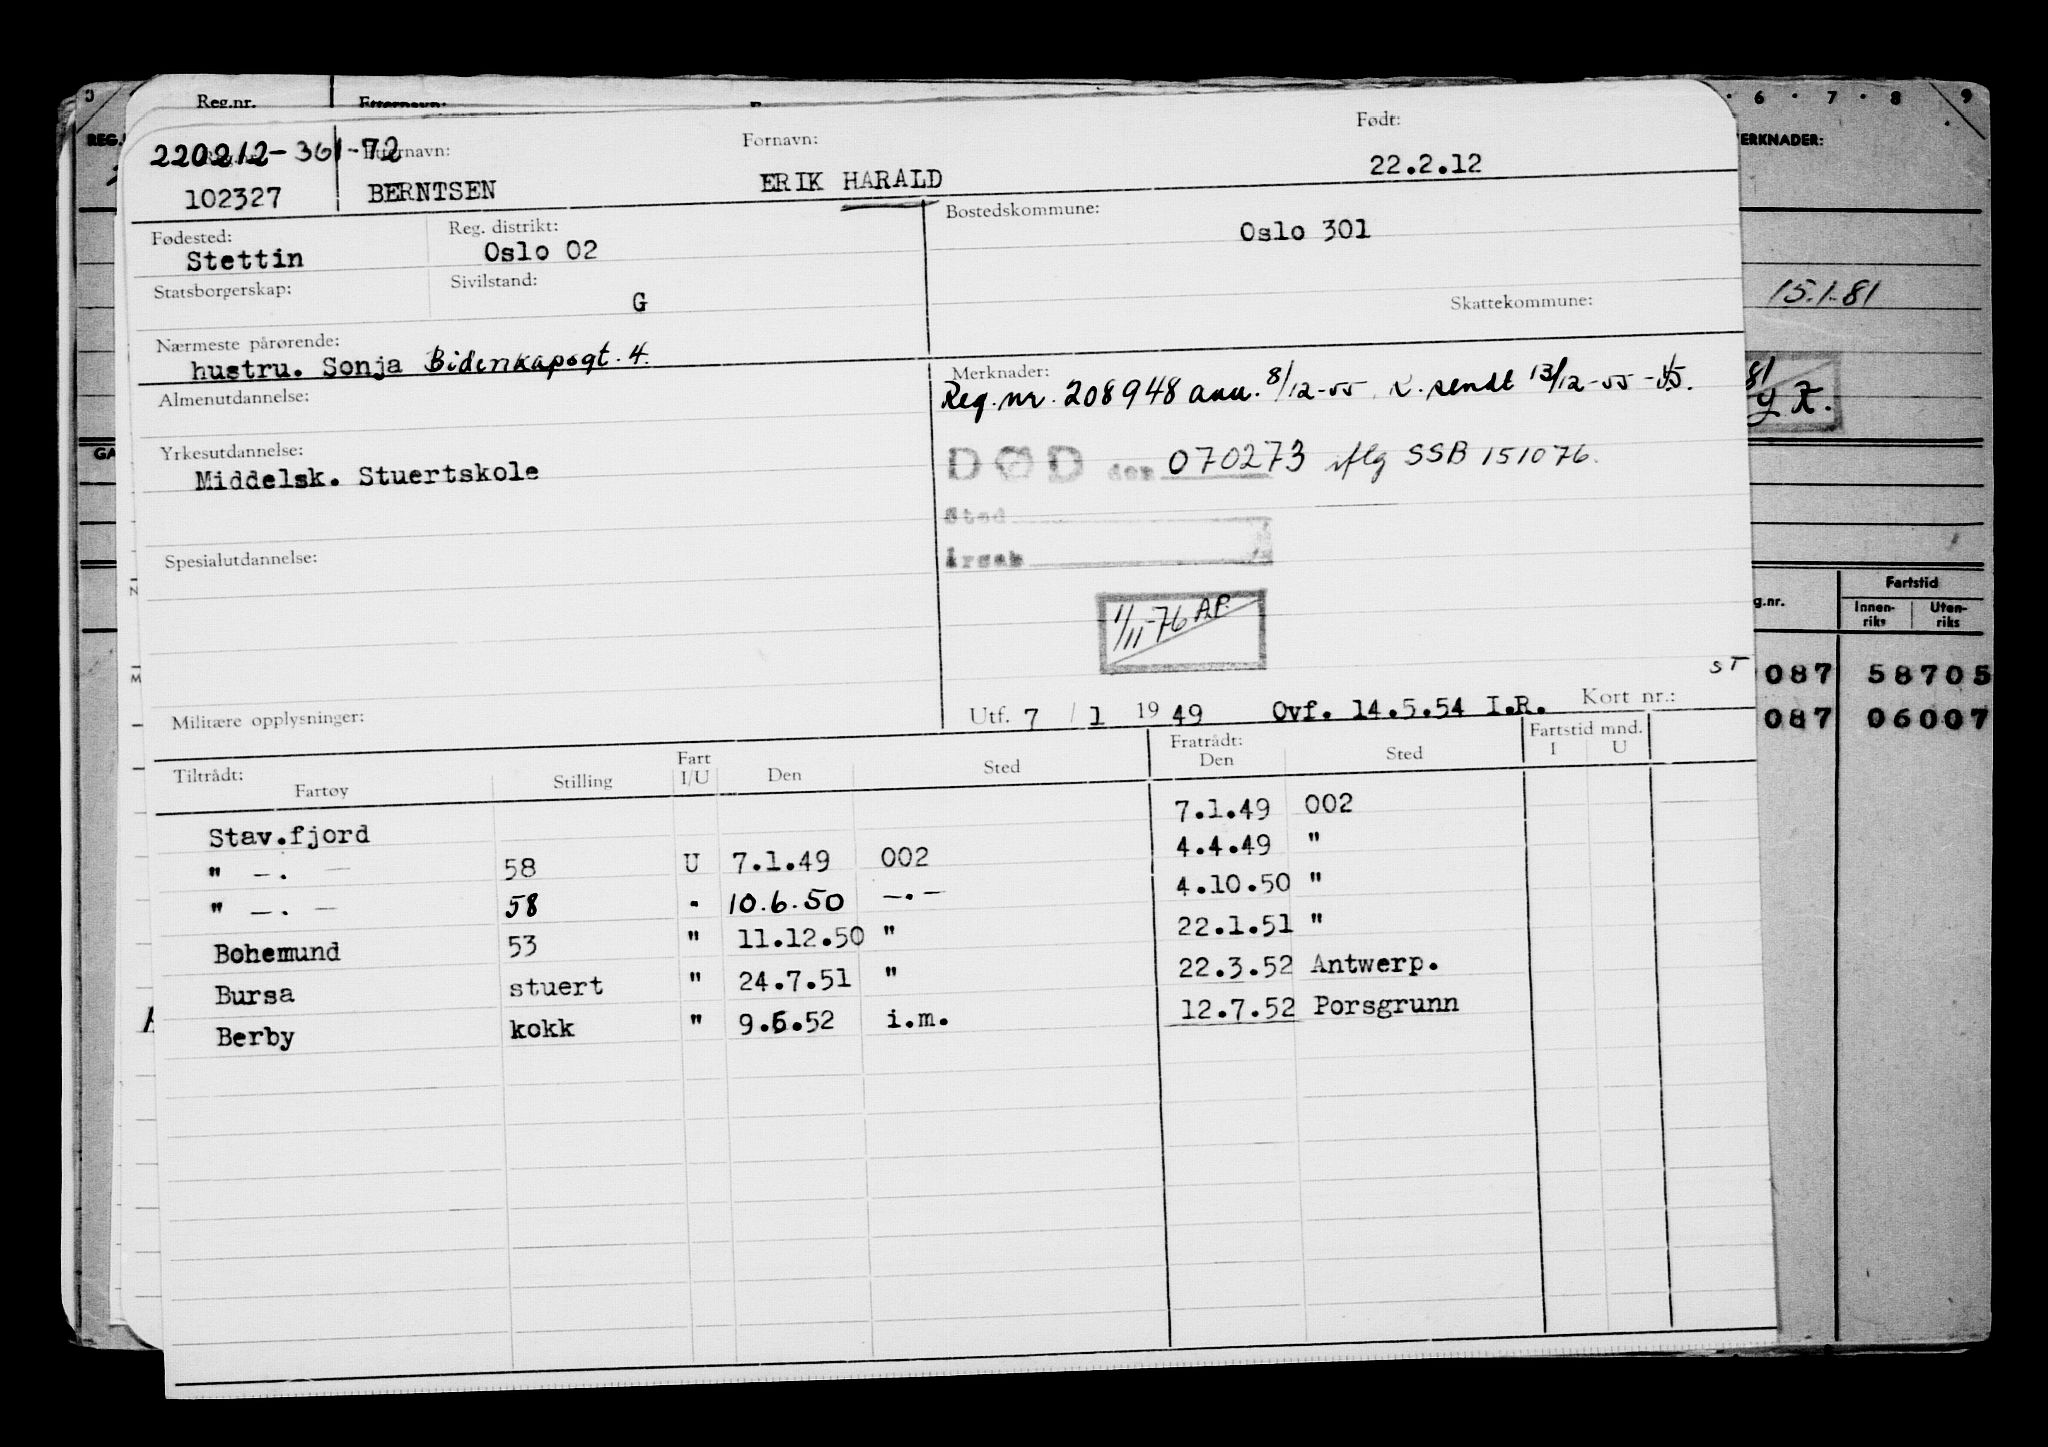 Reg.nr.
220212-361-72 Etternavn: Fornavn: Født:
102327 BERNTSEN ERIK HARALD 22.2.12
Fødested: Reg. distrikt: Bostedskommune:
Stettin Oslo 02 Oslo 301
Statsborgerskap: Sivilstand: Skattekommune:
G
Nærmeste pårørende:
hustru. Sonja Bidenkapsgt. 4.
Merknader:
Reg.nr. 208948 ann. 8/12-55. K. sendt 13/12-55
Almenutdannelse:
Yrkesutdannelse:
Middelsk. Stuertskole
DØD den 070273 iflg SSB 151076.
Sted
Årsak
Spesialutdannelse:
1/11-76 A.P.
Militære opplysninger:
Utf. 7 / 1 19 49 Ovf. 14.5.54 I.R. Kort nr.:
ST
Tiltrådt: Fratrådt: Fartstid mnd.
Fartøy Stilling Fart I/U Den Sted Den Sted I U
Stav.fjord 7.1.49 002
" -. - 58 U 7.1.49 002 4.4.49 "
" -. - 58 " 10.6.50 -.- 4.10.50 "
Bohemund 53 " 11.12.50 " 22.1.51 "
Bursa stuert " 24.7.51 " 22.3.52 Antwerp.
Berby kokk " 9.6.52 i.m. 12.7.52 Porsgrunn
6 . 7 . 8 . 9
ERKNADER:
15.1.81
81
Fartstid
g.nr. Innen-riks Uten-riks
087 58705
087 06007